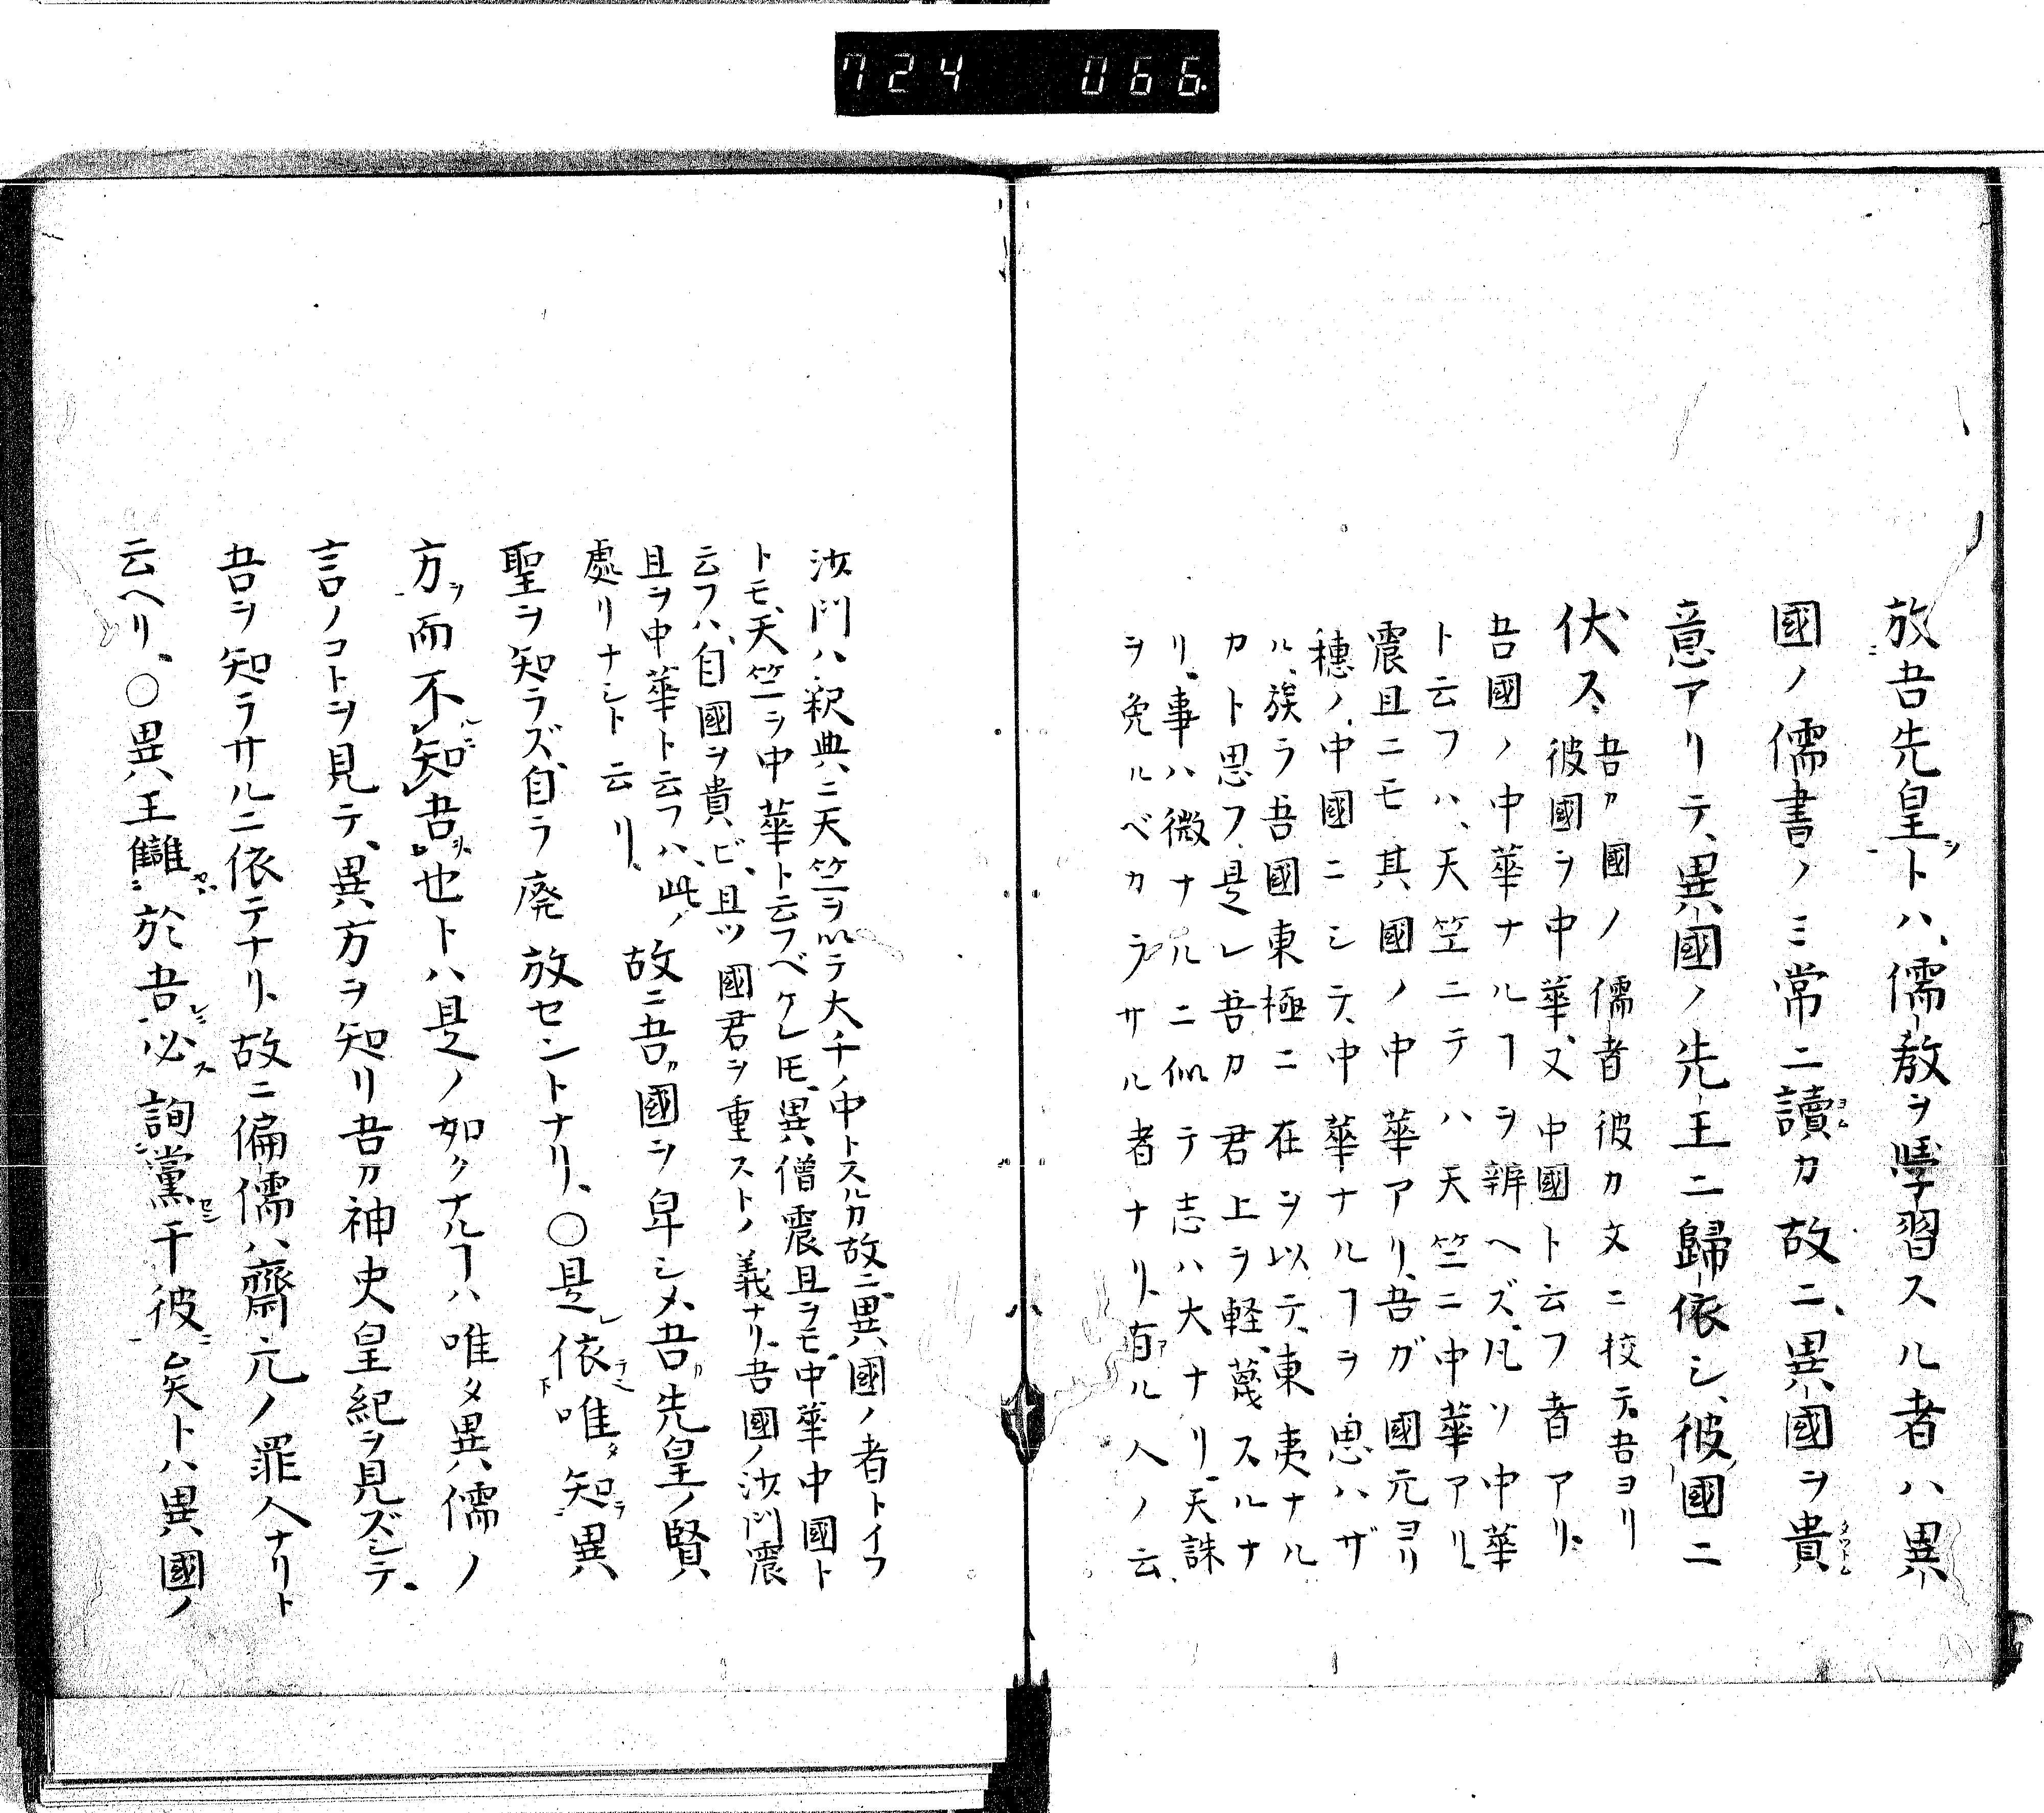 724 066
放吾先皇トハ、儒教ヲ學習スル者ハ異
國ノ儒書ノミ常ニ讀カ故ニ、異國ヲ貴
意アリテ、異國ノ先王ニ歸依シ、彼國ニ
伏ス、吾カ國ノ儒者彼カ文ニ校テ吾ヨリ
彼國ヲ中華、又中國ト云フ者アリ、
吾國ノ中華ナルヿヲ辨ヘズ、凡ソ中華
ト云フハ、天竺ニテハ天竺ニ中華アリ、
震旦ニモ其國ノ中華アリ、吾ガ國元ヨリ
穗ノ中國ニシテ、中華ナルヿヲ思ハザ
ル、族ラ吾國東極ニ在ヲ以テ、東夷ナル
カト思フ、是レ吾カ君上ヲ軽蔑スルナ
リ、事ハ微ナルニ似テ志ハ大ナリ、天誅
ヲ免ルベカラサル者ナリ、有ル人ノ云、
沙門ハ、釈典ニ天竺ヲ以テ大千ノ中トスルカ故ニ、異國ノ者トイフ
トモ、天竺ヲ中華ト云フベケレ𪜈、異僧震旦ヲモ、中華中國ト
云フハ、自國ヲ貴ビ、且ツ國君ヲ重ストノ義ナリ、吾國ノ沙門震
旦ヲ中華ト云フハ、此ノ
處リナシト云リ、
故ニ吾カ國ヲ卑シメ、吾カ先皇ノ賢
聖ヲ知ラズ、自ラ廃放セントナリ、○是レ依唯タ知ラ異
方ヲ而不知吾ヲ也トハ是ノ如クナルヿハ唯タ異儒ノ
言ノコトヲ見テ、異方ヲ知リ吾カ神史皇紀ヲ見ズシテ、
吾ヲ知ラサルニ依テナリ、故ニ偏儒ハ齋元ノ罪人ナリト
云ヘリ、○異王讎於吾必詢黨干彼矣トハ異國ノ